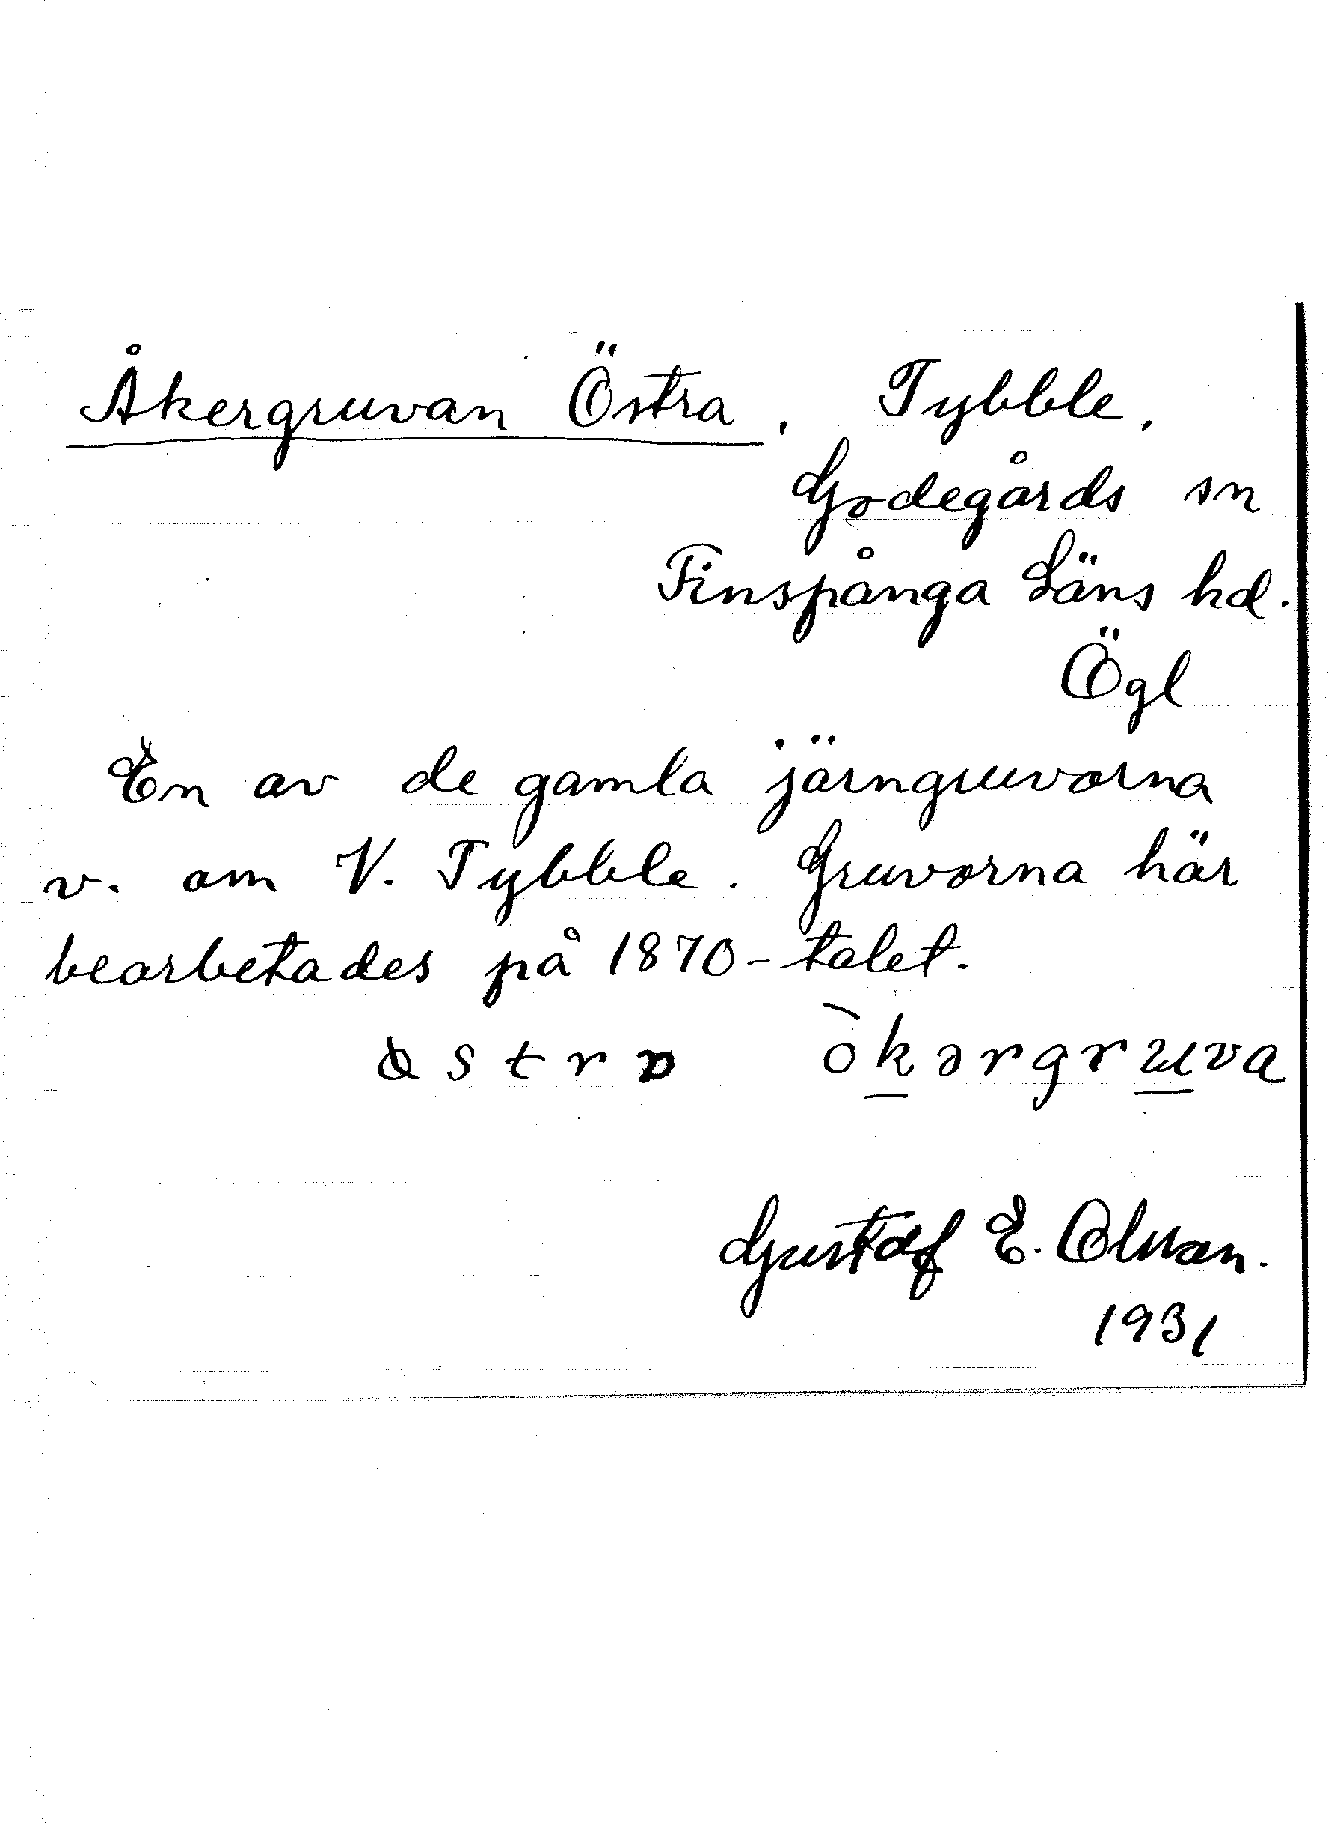 Åkergruvan Östra. Tybble.
Godegårds sn
Finspånga Läns hd.
Ögl
En av de gamla järngruvorna
v. om V. Tybble. Gruvorna här
bearbetades på 1870-talet.
òkərgruva
Gustaf E. Olsson.
1931